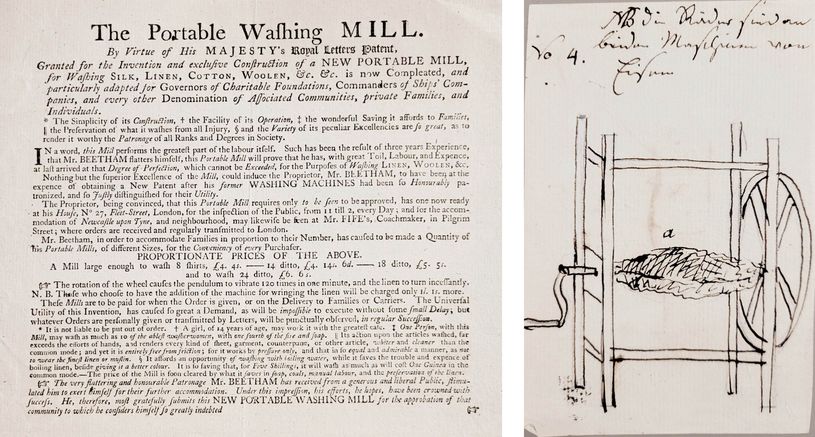 The Portable Waſhing MILL.
By Virtue of His MAJESTY's Royal Letters Patent,
Granted for the Invention and excluſive Conſtruction of a NEW PORTABLE MILL,
for Waſhing SILK, LINEN, COTTON, WOOLEN, &c. &c. is now Compleated, and
particularly adapted for Governors of Charitable Foundations, Commanders of Ships' Com-
panies, and every other Denomination of Aſſociated Communities, private Families, and
Individuals.
* The Simplicity of its Conſtruction, † the Facility of its Operation, ‡ the wonderful Saving it affords to Families,
‖ the Preſervation of what it waſhes from all Injury, § and the Variety of its peculiar Excellencies are ſo great, as to
render it worthy the Patronage of all Ranks and Degrees in Society.
IN a word, this Mill performs the greateſt part of the labour itſelf. Such has been the reſult of three years Experience,
that Mr. BEETHAM flatters himſelf, this Portable Mill will prove that he has, with great Toil, Labour, and Expence,
at laſt arrived at that Degree of Perfection, which cannot be Exceeded, for the Purpoſes of Waſhing LINEN, WOOLEN, &c.
Nothing but the ſuperior Excellence of the Mill, could induce the Proprietor, Mr. BEETHAM, to have been at the
expence of obtaining a New Patent after his former WASHING MACHINES had been ſo Honourably pa-
tronized, and ſo Juſtly diſtinguiſhed for their Utility.
The Proprietor, being convinced, that this Portable Mill requires only to be ſeen to be approved, has one now ready
at his Houſe, Nº 27, Fleet-Street, London, for the inſpection of the Public, from 11 till 2, every Day; and for the accom-
modation of Newcaſtle upon Tyne, and neighbourhood, may likewiſe be ſeen at Mr. FIFE's, Coachmaker, in Pilgrim
Street; where orders are received and regularly tranſmitted to London.
Mr. Beetham, in order to accommodate Families in proportion to their Number, has cauſed to be made a Quantity of
his Portable Mills, of different Sizes, for the Conveniency of every Purchaſer.
PROPORTIONATE PRICES OF THE ABOVE.
A Mill large enough to waſh 8 ſhirts, £4. 4s. —— 14 ditto, £4. 14s. 6d. —— 18 ditto, £5. 5s.
and to waſh 24 ditto, £6. 6s.
☞ The rotation of the wheel cauſes the pendulum to vibrate 120 times in one minute, and the linen to turn inceſſantly.
N. B. Thoſe who chooſe to have the addition of the machine for wringing the linen will be charged only 1l. 1s. more.
Theſe Mills are to be paid for when the Order is given, or on the Delivery to Families or Carriers. The Univerſal
Utility of this Invention, has cauſed ſo great a Demand, as will be impoſſible to execute without ſome ſmall Delay; but
whatever Orders are perſonally given or tranſmitted by Letters, will be punctually obſerved, in regular Succeſſion.
* It is not liable to be put out of order. † A girl, of 14 years of age, may work it with the greateſt eaſe. ‡ One Perſon, with this
Mill, may waſh as much as 10 of the ableſt waſherwomen, with one fourth of the fire and ſoap. § Its action upon the articles waſhed, far
exceeds the efforts of hands, and renders every kind of ſheet, garment, counterpane, or other article, whiter and cleaner than the
common mode; and yet it is entirely free from friction; for it works by preſſure only, and that in ſo equal and admirable a manner, as not
to wear the fineſt linen or muſlin. § It affords an opportunity of waſhing with boiling water, while it ſaves the trouble and expence of
boiling linen, beſide giving it a better colour. It is ſo ſaving that, for Five Shillings, it will waſh as much as will coſt One Guinea in the
common mode.—The price of the Mill is ſoon cleared by what it ſaves in ſoap, coals, manual labour, and the preſervation of the linen.
☞ The very flattering and honourable Patronage Mr. BEETHAM has received from a generous and liberal Public, ſtimu-
lated him to exert himſelf for their further accommodation. Under this impreſſion, his efforts, he hopes, have been crowned with
ſucceſs. He, therefore, moſt gratefully ſubmits this NEW PORTABLE WASHING MILL for the approbation of that
community to which he conſiders himſelf ſo greatly indebted
NB die Räder sind an
beiden Maschinen von
Eisen
No 4.
a